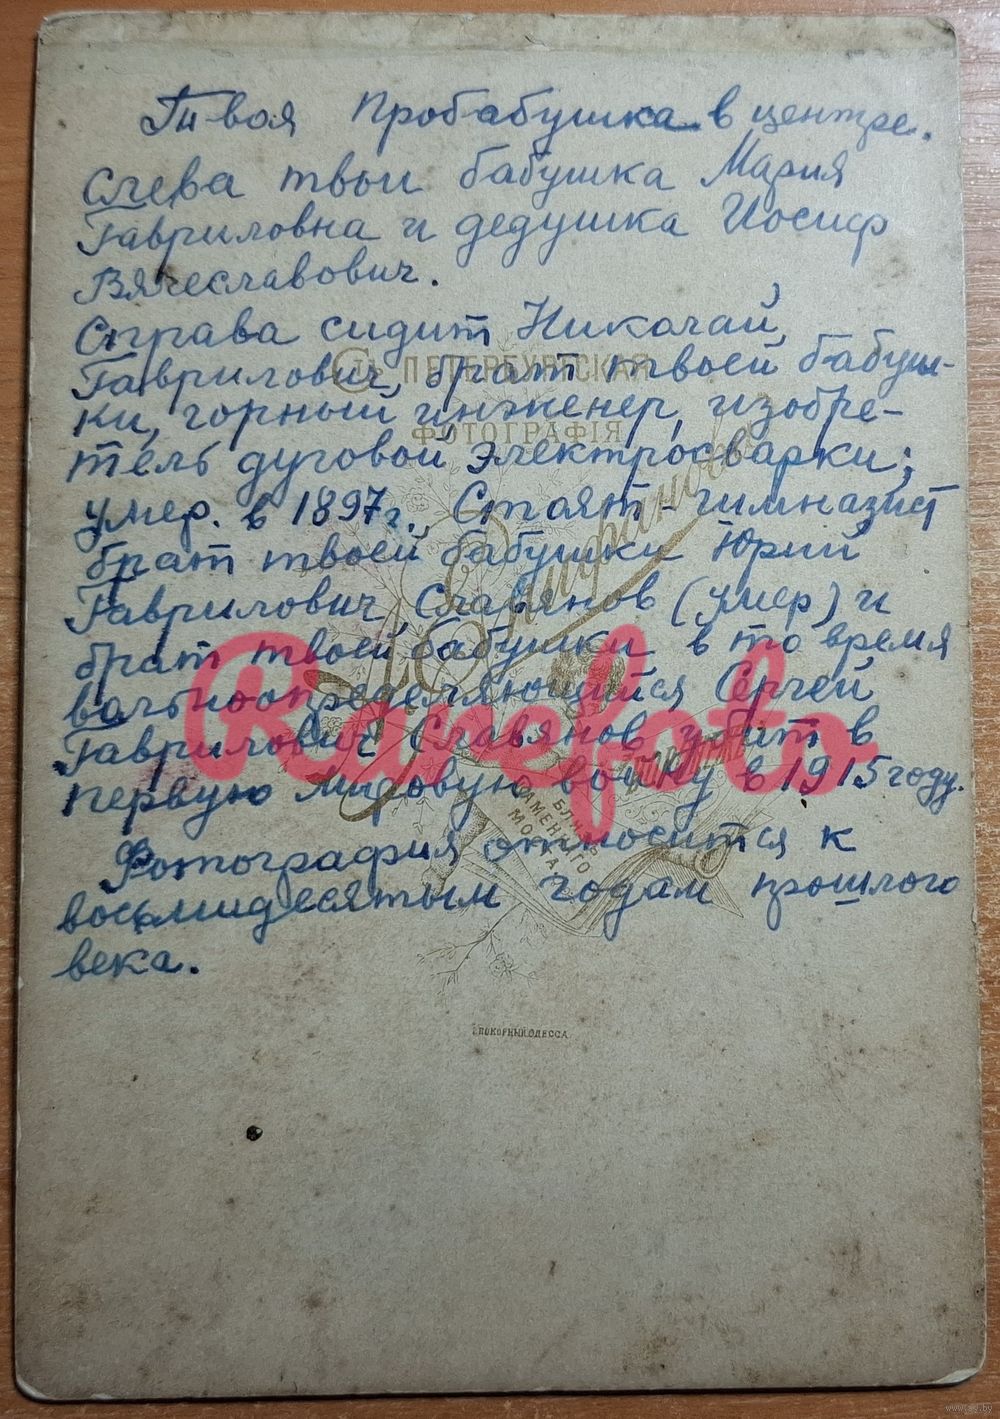 Твоя пробабушка в центре.
Слева твои бабушка Мария
Гавриловна и дедушка Иосиф
Вячеславович.
Справа сидит Николай
Гаврилович, брат твоей бабуш-
ки, горный инженер, изобре-
тель дуговой электросварки;
умер. в 1897 г. Стоят - гимназист
брат твоей бабушки Юрий
Гаврилович Славянов (умер) и
брат твоей бабушки в то время
вольноопределяющийся Сергей
Гаврилович Славянов убит в
первую мировую войну в 1915 году.
Фотография относится к
восьмидесятым годам прошлого
века.
С.ПЕТЕРБУРГСКАЯ
ФОТОГРАФІЯ
БЛИЗЪ
КАМЕННАГО
МОСТА
Rarefoto
ПОКОРНЫЙ.ОДЕССА.